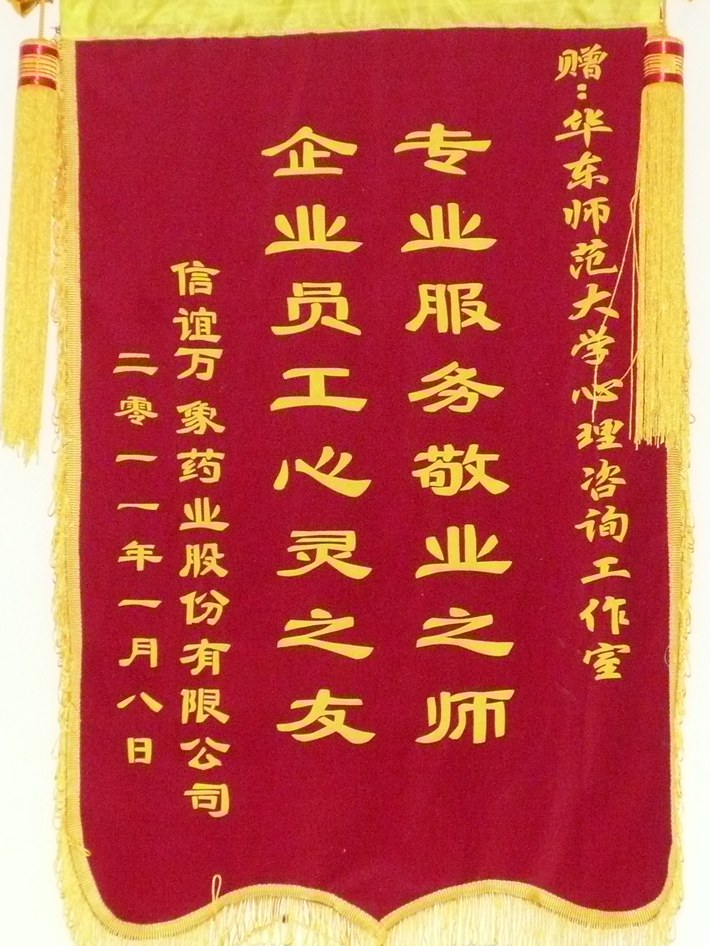 赠:华东师范大学心理咨询工作室
专业服务敬业之师
企业员工心灵之友
信谊万象药业股份有限公司
二零一一年一月八日